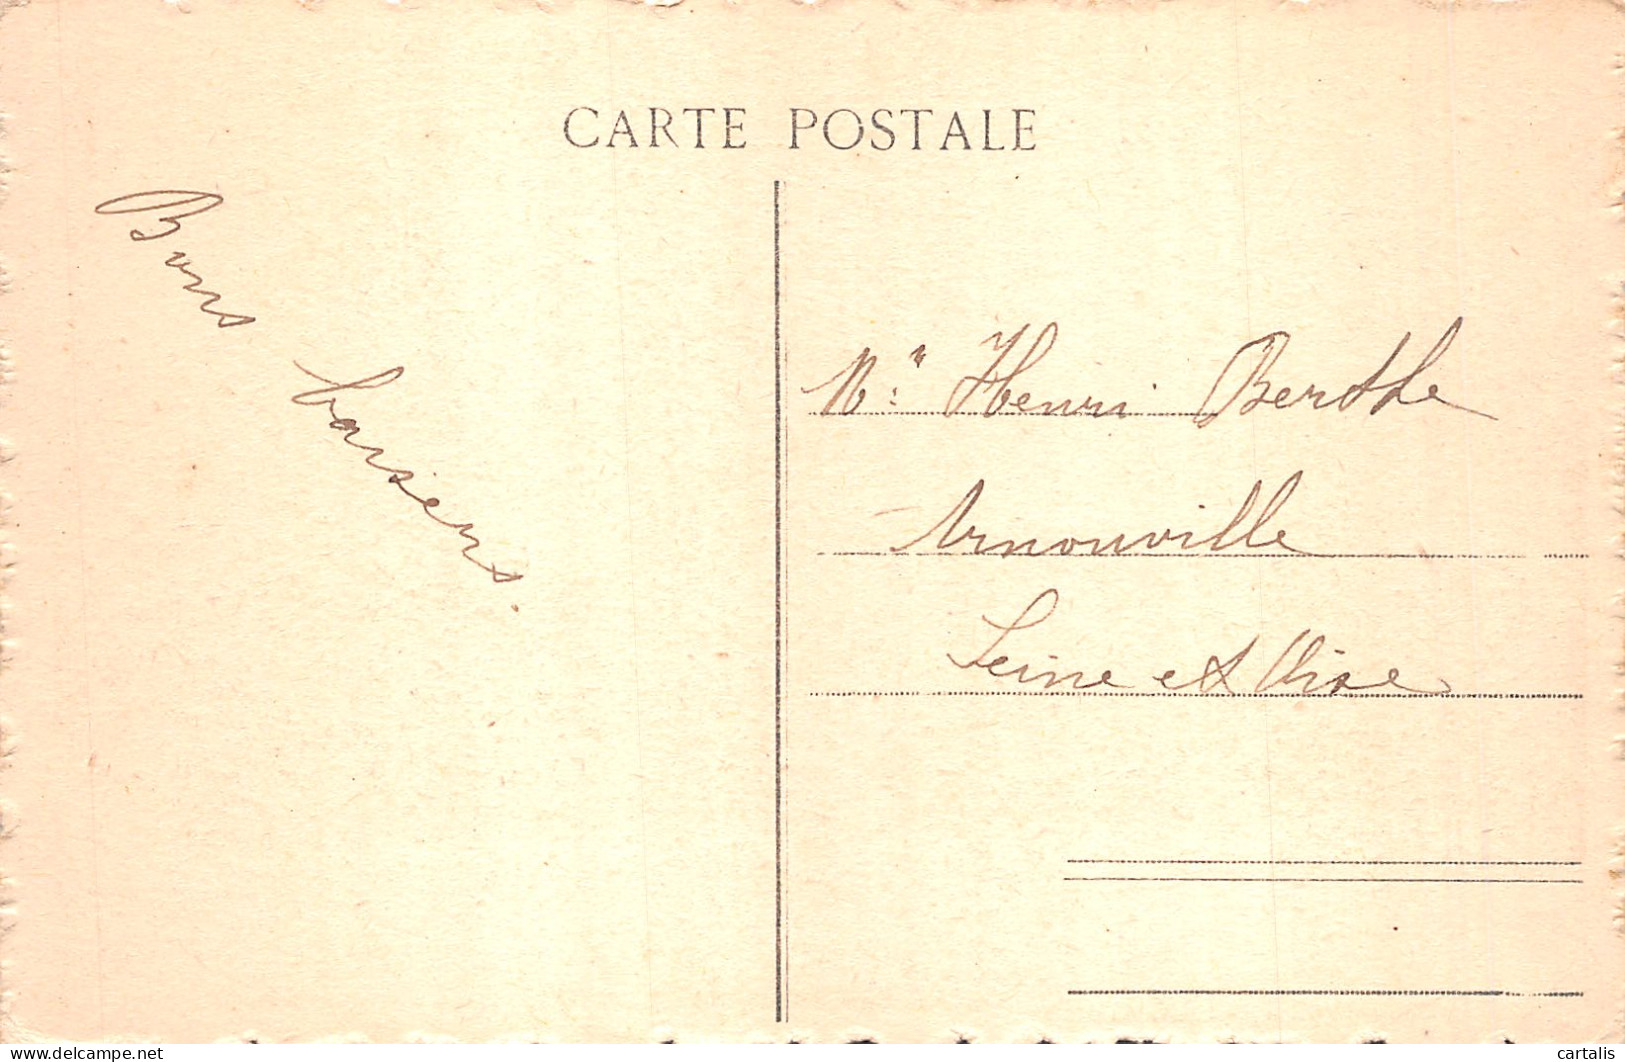 CARTE POSTALE
Bons baisers.
Mr Henri Berthe
Arnouville
Seine et Oise
www.delcampe.net
cartalis